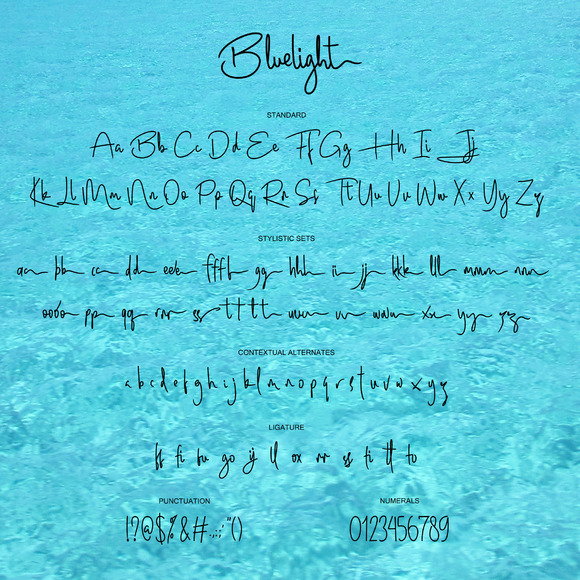 Bluelight
STANDARD
Aa Bb Cc Dd Ee Ff Gg Hh Ii Jj
Kk Ll Mm Nn Oo Pp Qq Rr Ss Tt Uu Vv Ww Xx Yy Zz
STYLISTIC SETS
aa bb cc dd eee ffff gg hhh ii jj kkk lll mmm nnn
oooo pp qq rrr ss t t t t uuu vv www xx yy zz
CONTEXTUAL ALTERNATES
a b c d e f g h i j k l m n o p q r s t u v w x y z
LIGATURE
ff fi fu go ij ll ox rr ss ti tt to
PUNCTUATION NUMERALS
!?@$%&#.,:;"() 0123456789